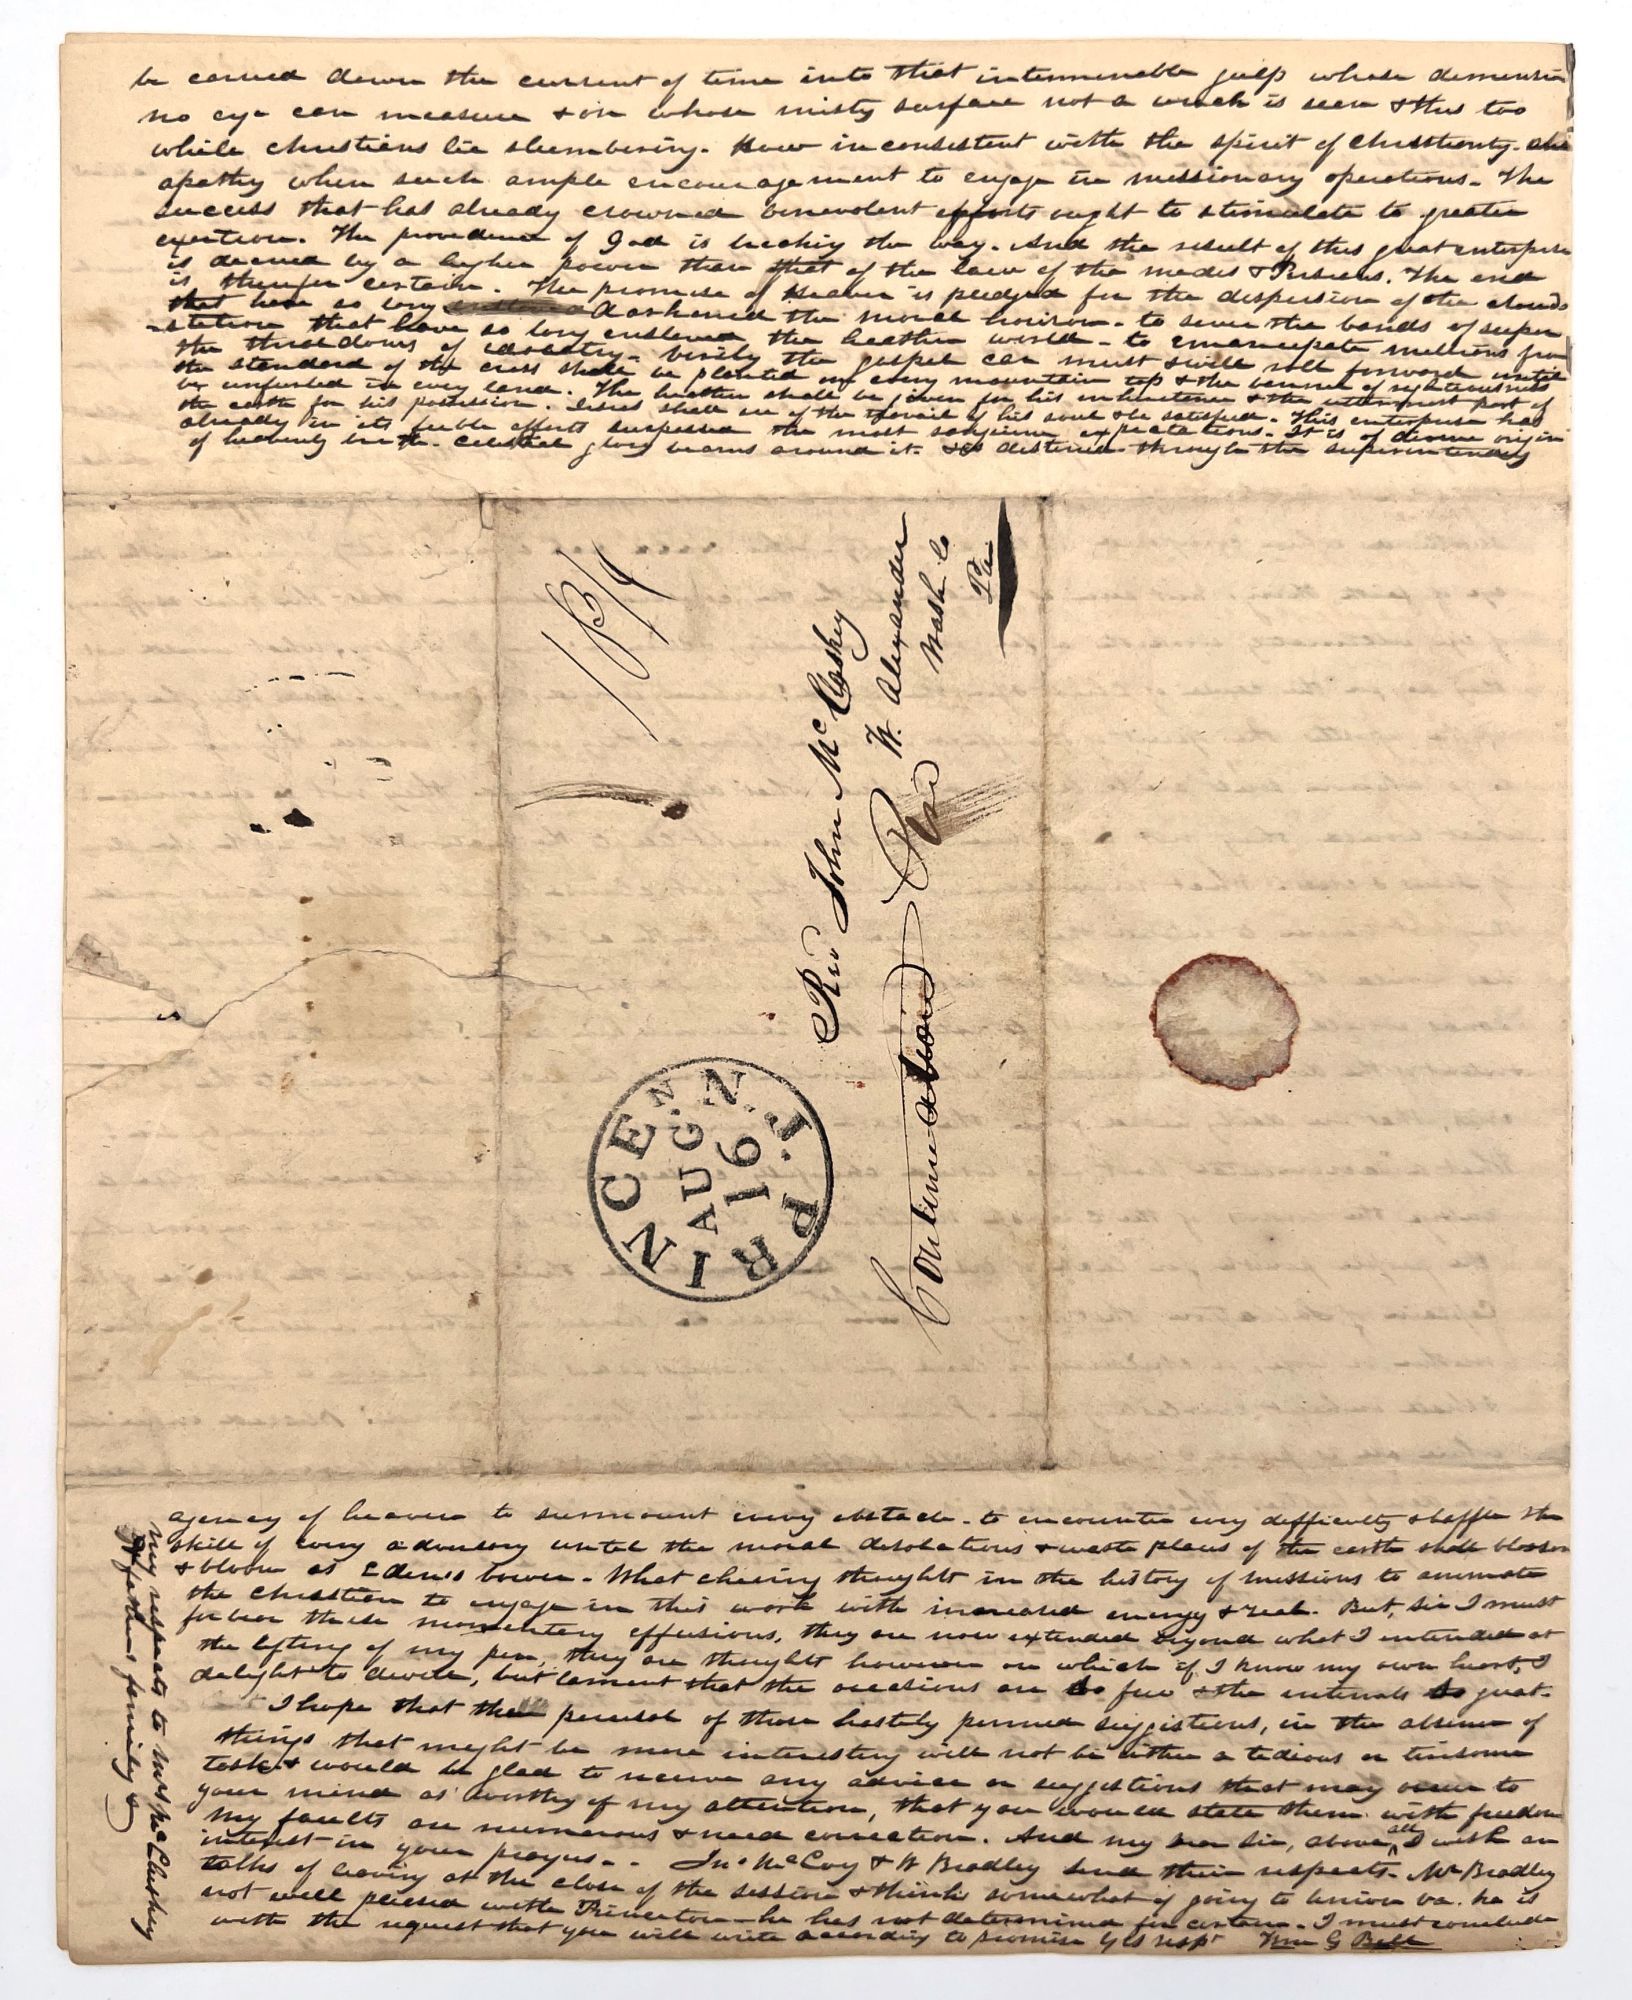 be carried down the current of time into that interminable gulf whose dimension
no eye can measure & on whose misty surface not a wreck is seen & this too
while christians lie slumbering. How inconsistent with the spirit of christianty.
apathy when such ample encouragement to engage in missionary operations. The
success that has already crowned benevolent efforts ought to stimulate to greater
exertion. The providence of God is backing the way. And the result of this great enterprise
is decreed by a higher power than that of the law of the medes & Persians. The end
is therefore certain. The promise of Heaven is pledged for the dispersion of the clouds
that have so long darkened the moral horison - to sever the bands of super
-stition that have so long enslaved the heathen world - to emancipate millions from
the thraldoms of idolatry - verily the gospel can must & will roll forward until
the standard of the cross shall be planted on every mountain top & the banner of righteousness
be unfurled in every land. The heathen shall be given for his inheritance & the uttermost part of
the earth for his possession. Jesus shall see of the travail of his soul & be satisfied. This enterprise has
already in its feeble efforts surpassed the most sanguine expectations. It is of divine origin
of heavenly birth. Celestial glory beams around it. & is destined through the superintending
18 3/4
Rev John McCloskey
W. Alexander
Wash. Co
Pa
Continuation
PRINCETON N.J.
AUG.
16
agency of heaven to surmount every obstacle - to encounter every difficulty & baffle the
skill of every adversary until the moral desolations & waste places of the earth shall blossom
& bloom as Edens bower - What cheering thoughts in the history of missions to animate
the christian to engage in this work with increased energy & zeal. But, sir I must
forbear these momentary effusions, they are now extended beyond what I intended at
the lifting of my pen, they are thoughts however on which if I know my own heart, I
delight to dwell, but lament that the occasions are so few & the intervals so great.
I hope that the perusal of those hastily penned suggistions, in the absence of
things that might be more interesting will not be either a tedious or tiresome
task & would be glad to receive any advice or suggestions that may occur to
your mind as worthy of my attention, that you would state them with freedom
My faults are numerous & need correction. And my dear sir, above all I wish an
interest in your prayers - . Jno McCoy & W Bradley send their respects - Mr Bradley
talks of leaving at the close of the session & thinks somewhat of going to Union va. he is
not well pleased with Princeton - he has not determined for certain - I must conclude
with the request that you will write according to promise Yrs respt Wm G Bell
My respects to Mrs McCloskey
& fathers family &